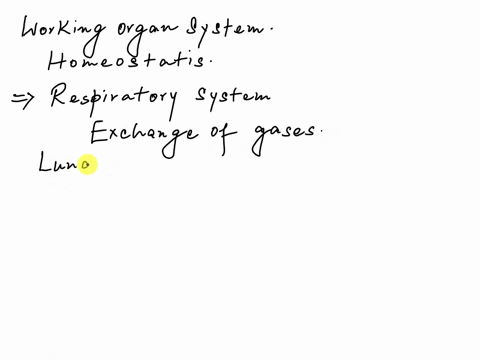 Working organ system.
Homeostatis.
⇒ Respiratory system
Exchange of gases.
Lung